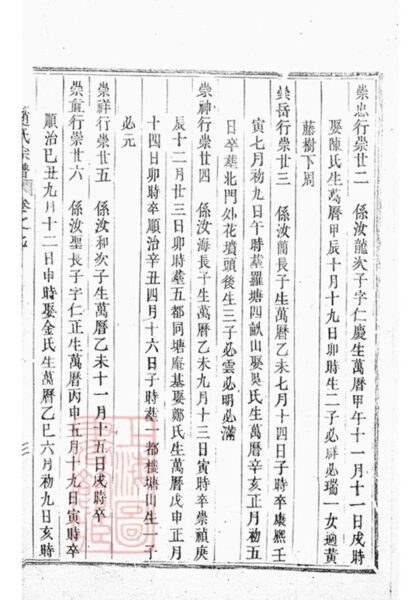 崇忠行崇廿二　係汝龍次子字仁慶生萬曆甲午十一月十一日戌時
娶陳氏生萬曆甲辰十月十九日卯時生二子必屏必瑞一女適黃
藤樹下周
崇岳行崇廿三　係汝蘭長子生萬曆乙未七月十四日子時卒康熙壬
寅七月初九日午時葬羅塘四畝山娶吳氏生萬曆辛亥正月初五
日卒葬北門外花墳頭後生三子必雲必明必滿
崇神行崇廿四　係汝海長子生萬曆乙未九月十三日寅時卒崇禎庚
辰十二月廿三日卯時葬五都同塘庵基娶鄭氏生萬曆戊申正月
十四日卯時卒順治辛丑四月十六日子時葬一都樣塘山生一子
必元
崇祥行崇廿五　係汝和次子生萬曆乙未十一月十五日戌時卒
崇賓行崇廿六　係汝聖長子字仁正生萬曆丙申五月十九日寅時卒
順治己丑九月十二日申時娶金氏生萬曆乙巳六月初九日亥時
趙氏宗譜　卷之九　二